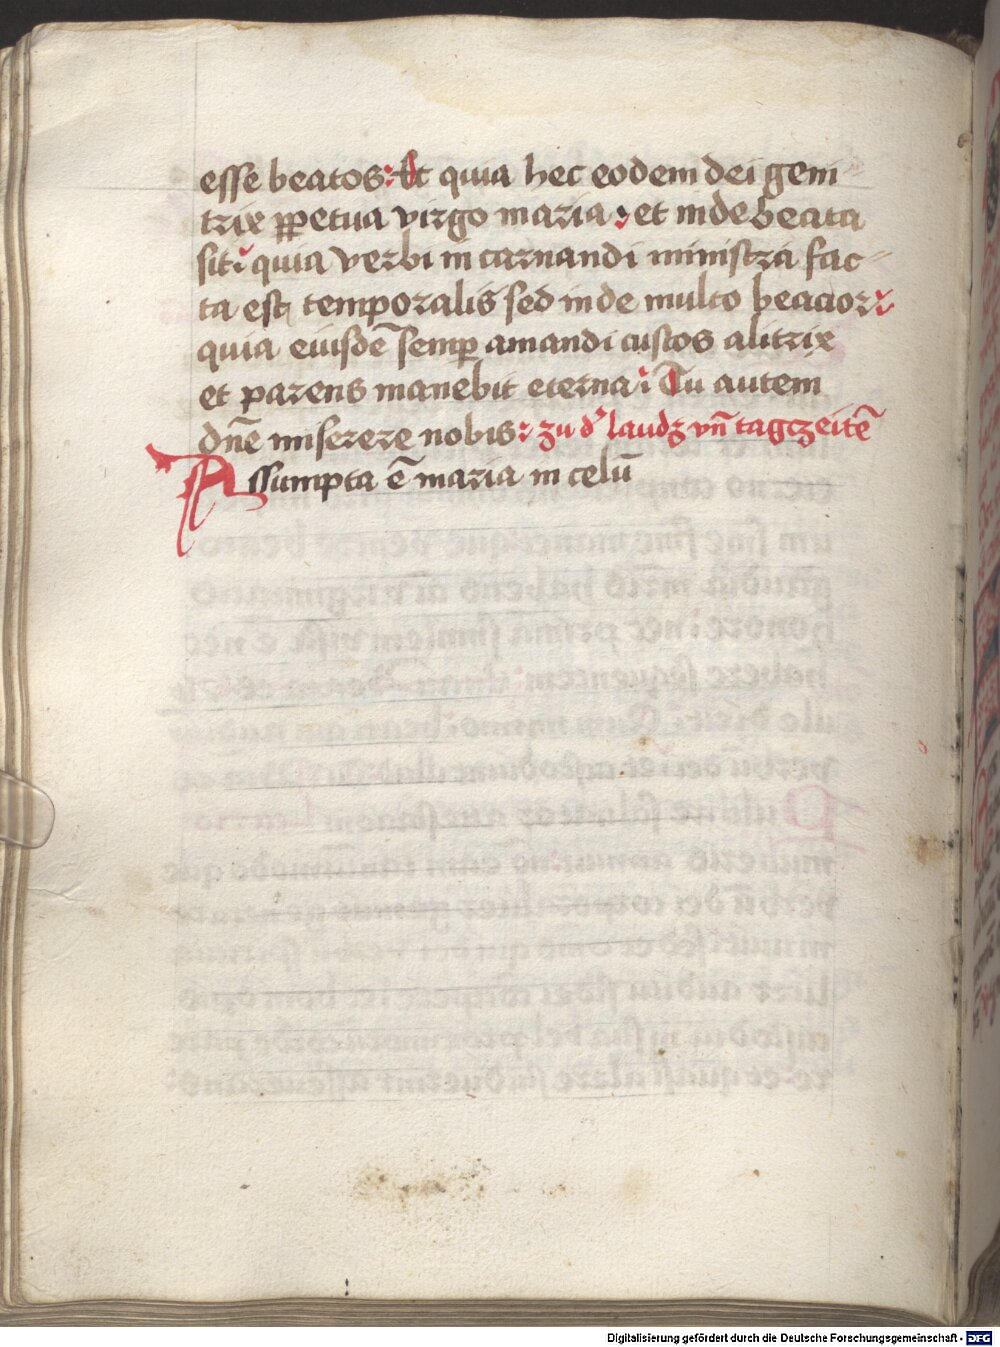 esse beatos: Et quia hec eodem dei geni
trix ꝑpetua virgo maria: et inde beata
sit: quia verbi in carnandi ministra fac-
ta est temporalis sed inde multo beatior:
quia eiusdē semꝑ amandi custos alitrix
et parens manebit eterna: Tu autem
dn̄e miserere nobis: zu d' laudꝫ vn̄ tagczeitē
Assumpta ē maria in celū
Digitalisierung gefördert durch die Deutsche Forschungsgemeinschaft - DFG